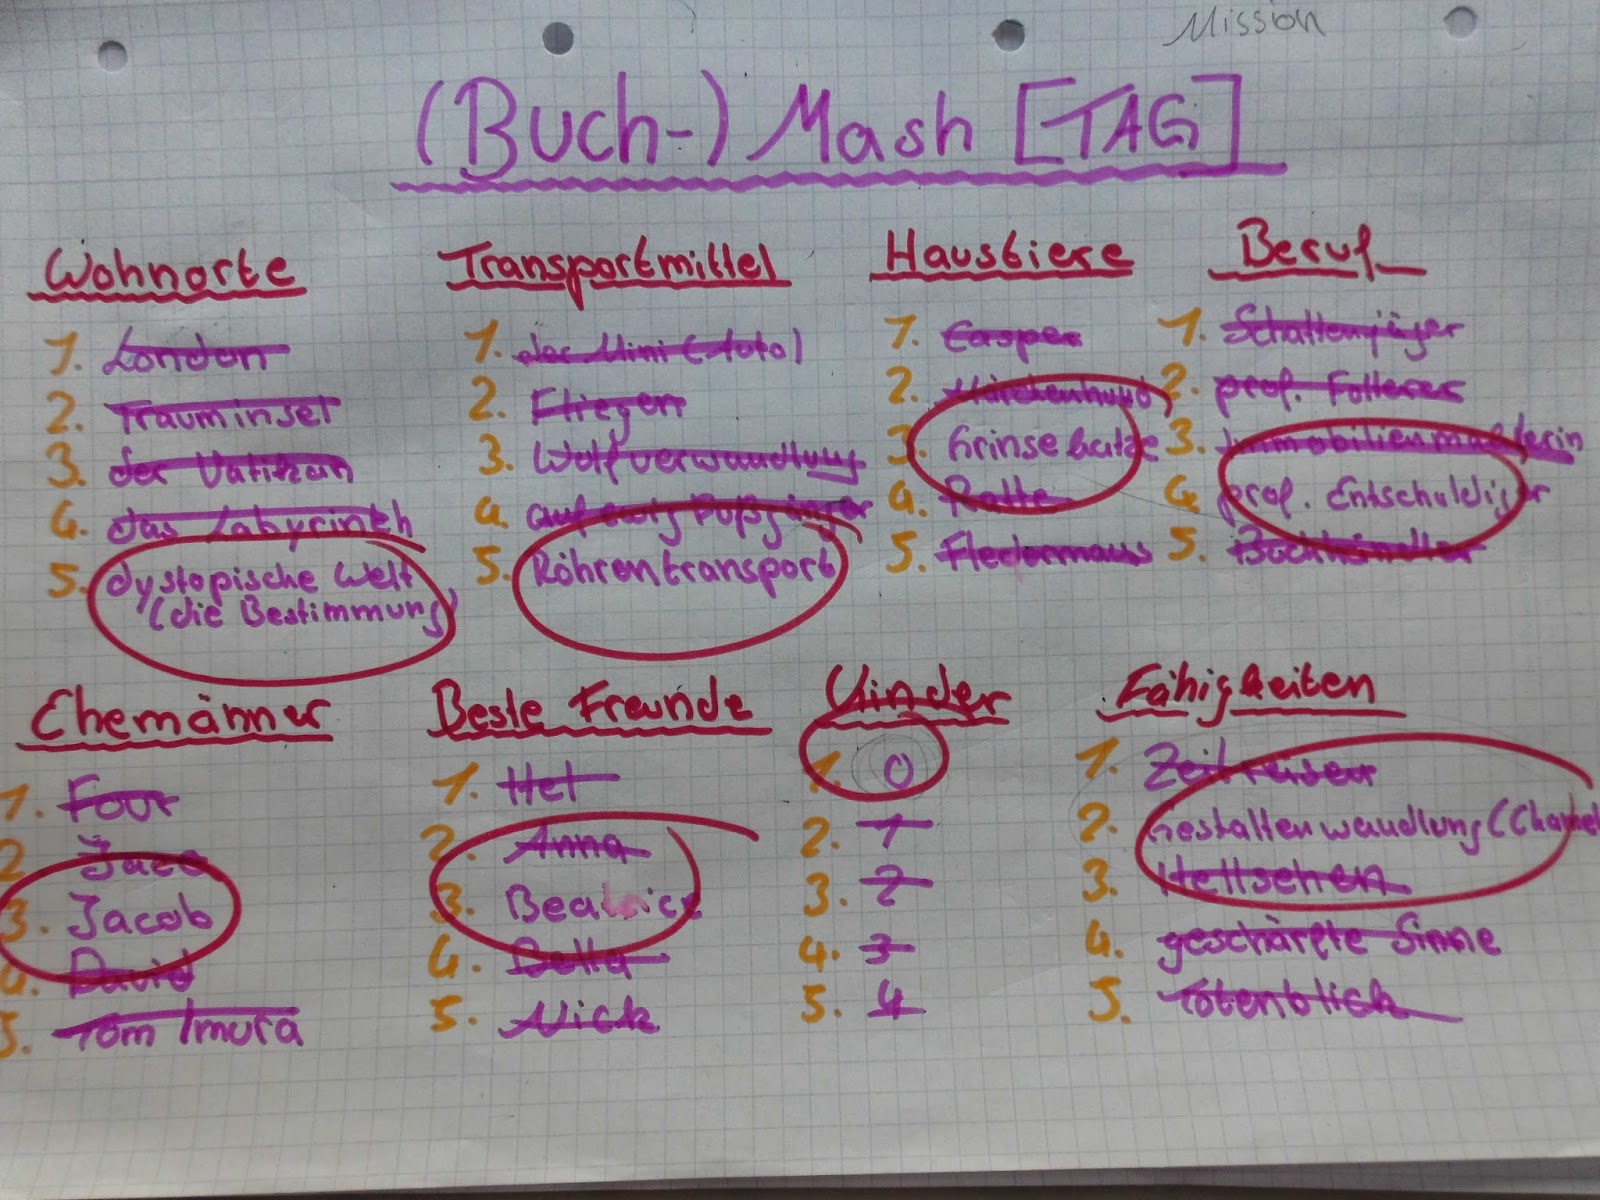 Mission
(Buch-) Mash [TAG]
Wohnorte
1. London
2. Trauminsel
3. der Vatikan
4. das Labyrinth
5. dystopische Welt
(die Bestimmung)
Transportmittel
1. der Mini (Auto)
2. Fliegen
3. Wolfverwandlung
4. auf ewig Fußgänger
5. Röhrentransport
Haustiere
1. Casper
2. Märchenhund
3. Grinsekatze
4. Ratte
5. Fledermaus
Beruf
1. Schattenjäger
2. prof. Folterer
3. Immobilienmaklerin
4. prof. Entschuldiger
5. Buchhändler
Ehemänner
1. Four
2. Jace
3. Jacob
4. David
5. Tom Imura
Beste Freunde
1. Hel
2. Anna
3. Beatrice
4. Della
5. Nick
Kinder
1. 0
2. 1
3. 2
4. 3
5. 4
Fähigkeiten
1. Zeitreisen
2. Gestaltenwandlung
3. Hellsehen
4. geschärfte Sinne
5. Totenblick